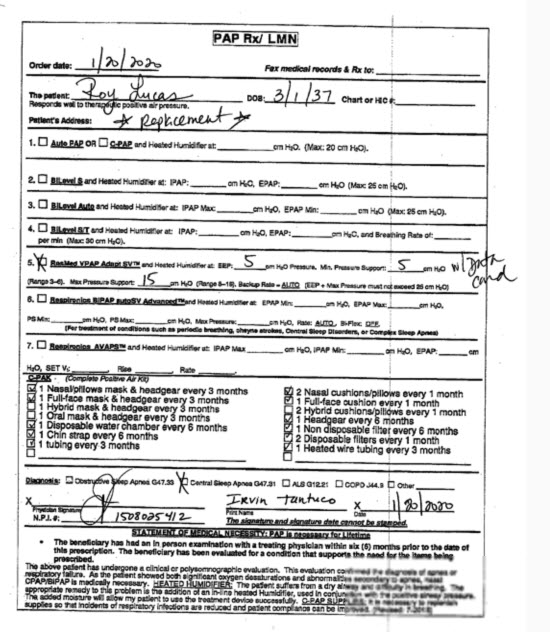 PAP Rx/ LMN
Order date: 1/20/2020 Fax medical records & Rx to:
The patient: Roy Lucas DOB: 3/1/37 Chart or HIC #:
Responds well to therapeutic positive air pressure.
Patient's Address: * Replacement *
1. ☐ Auto PAP OR ☐ C-PAP and Heated Humidifier at: cm H₂O. (Max: 20 cm H₂O).
2. ☐ BiLevel S and Heated Humidifier at: IPAP: cm H₂O, EPAP: cm H₂O (Max: 25 cm H₂O).
3. ☐ BiLevel Auto and Heated Humidifier at: IPAP Max: cm H₂O, EPAP Min: cm H₂O (Max: 25 cm H₂O).
4. ☐ BiLevel S/T and Heated Humidifier at: IPAP: cm H₂O, EPAP: cm H₂O, and Breathing Rate of:
per min (Max: 30 cm H₂O).
5. ☒ ResMed VPAP Adapt SV™ and Heated Humidifier at: EEP: 5 cm H₂O Pressure, Min. Pressure Support: 5 cm H₂O w/ Data card
(Range 3-6). Max Pressure Support: 15 cm H₂O (Range 8-16). Backup Rate = AUTO (EEP + Max Pressure must not exceed 25 cm H₂O)
6. ☐ Respironics BiPAP autoSV Advanced™ and Heated Humidifier at: EPAP Min: cm H₂O, EPAP Max: cm H₂O,
PS Min: cm H₂O, PS Max: cm H₂O, Max Pressure: cm H₂O, Rate: AUTO, Bi-Flex: OFF.
(For treatment of conditions such as periodic breathing, cheyne strokes, Central Sleep Disorders, or Complex Sleep Apnea)
7. ☐ Respironics AVAPS™ and Heated Humidifier at: IPAP Max cm H₂O, IPAP Min: cm H₂O, EPAP: cm
H₂O, SET Vt: Rise Rate
C-PAK - (Complete Positive Air Kit)
☑ 1 Nasal/pillows mask & headgear every 3 months
☑ 1 Full-face mask & headgear every 3 months
☐ 1 Hybrid mask & headgear every 3 months
☐ 1 Oral mask & headgear every 3 months
☑ 1 Disposable water chamber every 6 months
☑ 1 Chin strap every 6 months
☑ 1 tubing every 3 months
☑ 2 Nasal cushions/pillows every 1 month
☑ 1 Full-face cushion every 1 month
☐ 2 Hybrid cushions/pillows every 1 month
☑ 1 Headgear every 6 months
☑ 1 Non disposable filter every 6 months
☑ 2 Disposable filters every 1 month
☐ 1 Heated wire tubing every 3 months
Diagnosis: ☐ Obstructive Sleep Apnea G47.33 ☒ Central Sleep Apnea G47.31 ☐ ALS G12.21 ☐ COPD J44.9 ☐ Other
X Irvin Tantuco X 1/20/2020
Physician Signature Print Name Date
N.P.I. #: 1508025412 The signature and signature date cannot be stamped.
STATEMENT OF MEDICAL NECESSITY: PAP is necessary for Lifetime
• The beneficiary has had an in person examination with a treating physician within six (6) months prior to the date of
this prescription. The beneficiary has been evaluated for a condition that supports the need for the items being
prescribed.
The above patient has undergone a clinical or polysomnographic evaluation. This evaluation confirmed the diagnosis of apnea or
respiratory failure. As the patient showed both significant oxygen desaturations and abnormalities secondary to apnea, nasal
CPAP/BIPAP is medically necessary. HEATED HUMIDIFIER: The patient suffers from a dry airway and difficulty in breathing. The
appropriate remedy to this problem is the addition of an in-line heated Humidifier, used in conjunction with the positive airway pressure.
The added moisture will allow my patient to use the treatment device successfully. C-PAP SUPPLIES: It is necessary to replenish
supplies so that incidents of respiratory infections are reduced and patient compliance can be improved. (Revised: 7-2018)